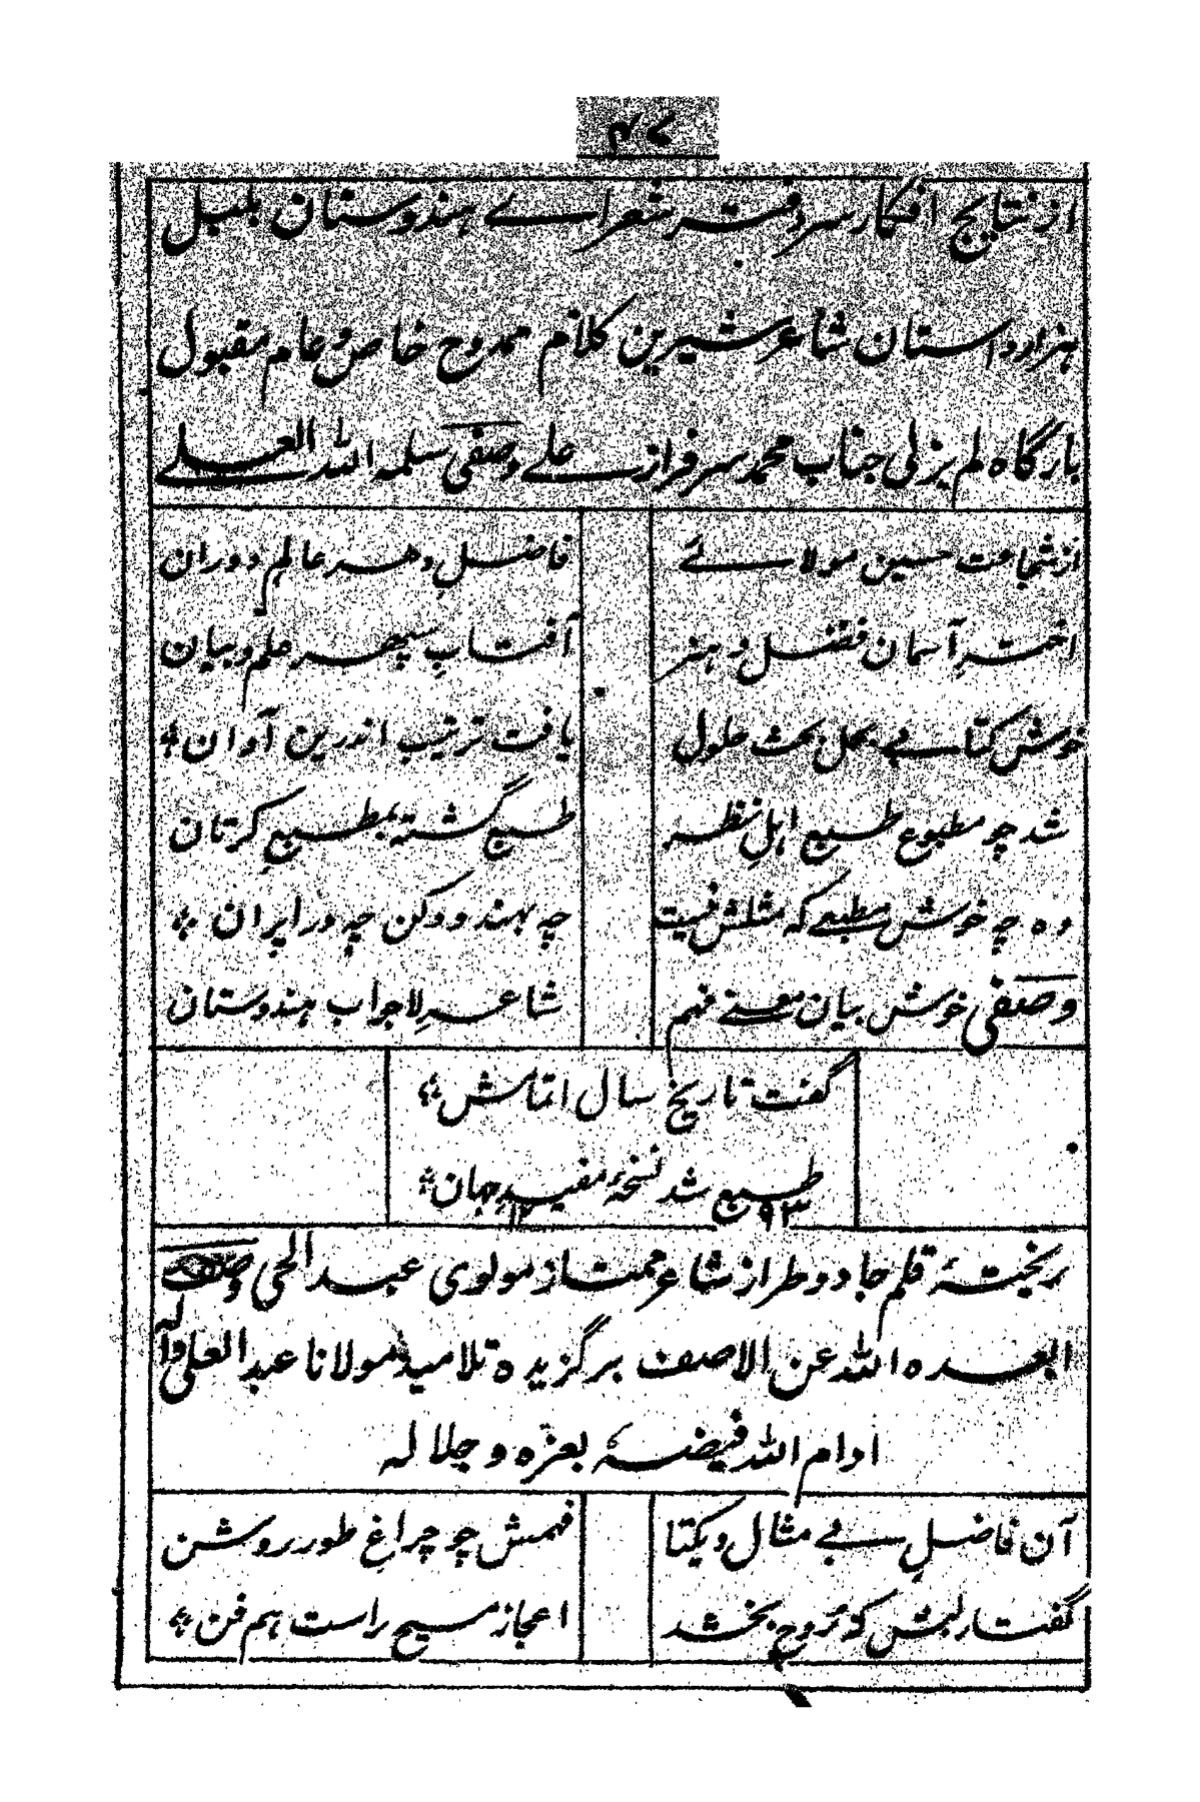 ۴۷
از نتایج افکار سر دفتر شعراے ہندوستان بلبل
ہزار داستان شاعر شیرین کلام ممدوح خاص و عام مقبول
بارگاہ لم یزلی جناب محمد سرفراز علے وصفی سلمہ اللہ العلے
از شجاعت حسین مولائے فاضلِ دہر عالم دوران
اخترِ آسمان فضل و ہنر آفتابِ سپہر علم و بیان
خوش کتابے بحل بحث حلول یافت ترتیب اندرین آوان
شد چو مطبوع طبع اہلِ نظر طبع گشتہ بمطبع کرتان
وہ چہ خوش مطبعے کہ مثلش نیست چہ بہند و دکن چہ در ایران
وصفی خوش بیان معنے فہم شاعرِ لاجواب ہندوستان
گفت تاریخ سال اتمامش
طبع شد نسخۂ مفید جہان
۱۲ ۹۳
ریختۂ قلم جادو طراز شاعر ممتاز مولوی عبد الحی وصف
العبدہ اللہ عن الاصف برگزیدہ تلامیذ مولانا عبد العلی والہ
ادام اللہ فیضہٗ بعزہ و جلالہ
آن فاضلِ بے مثال و یکتا فہمش چو چراغِ طور روشن
گفتارِ لبش کہ روح بخشد اعجاز مسیح راست ہم فن